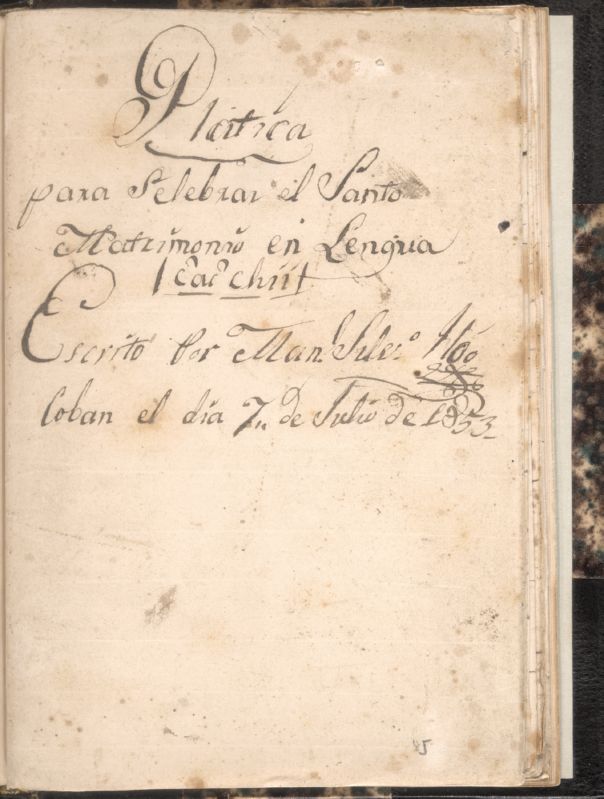 Platica
para Selebrar el Santo
Matrimonio en Lengua
Escrito por Man.l
Coban el dia 7,, de Julio de 1853_
5